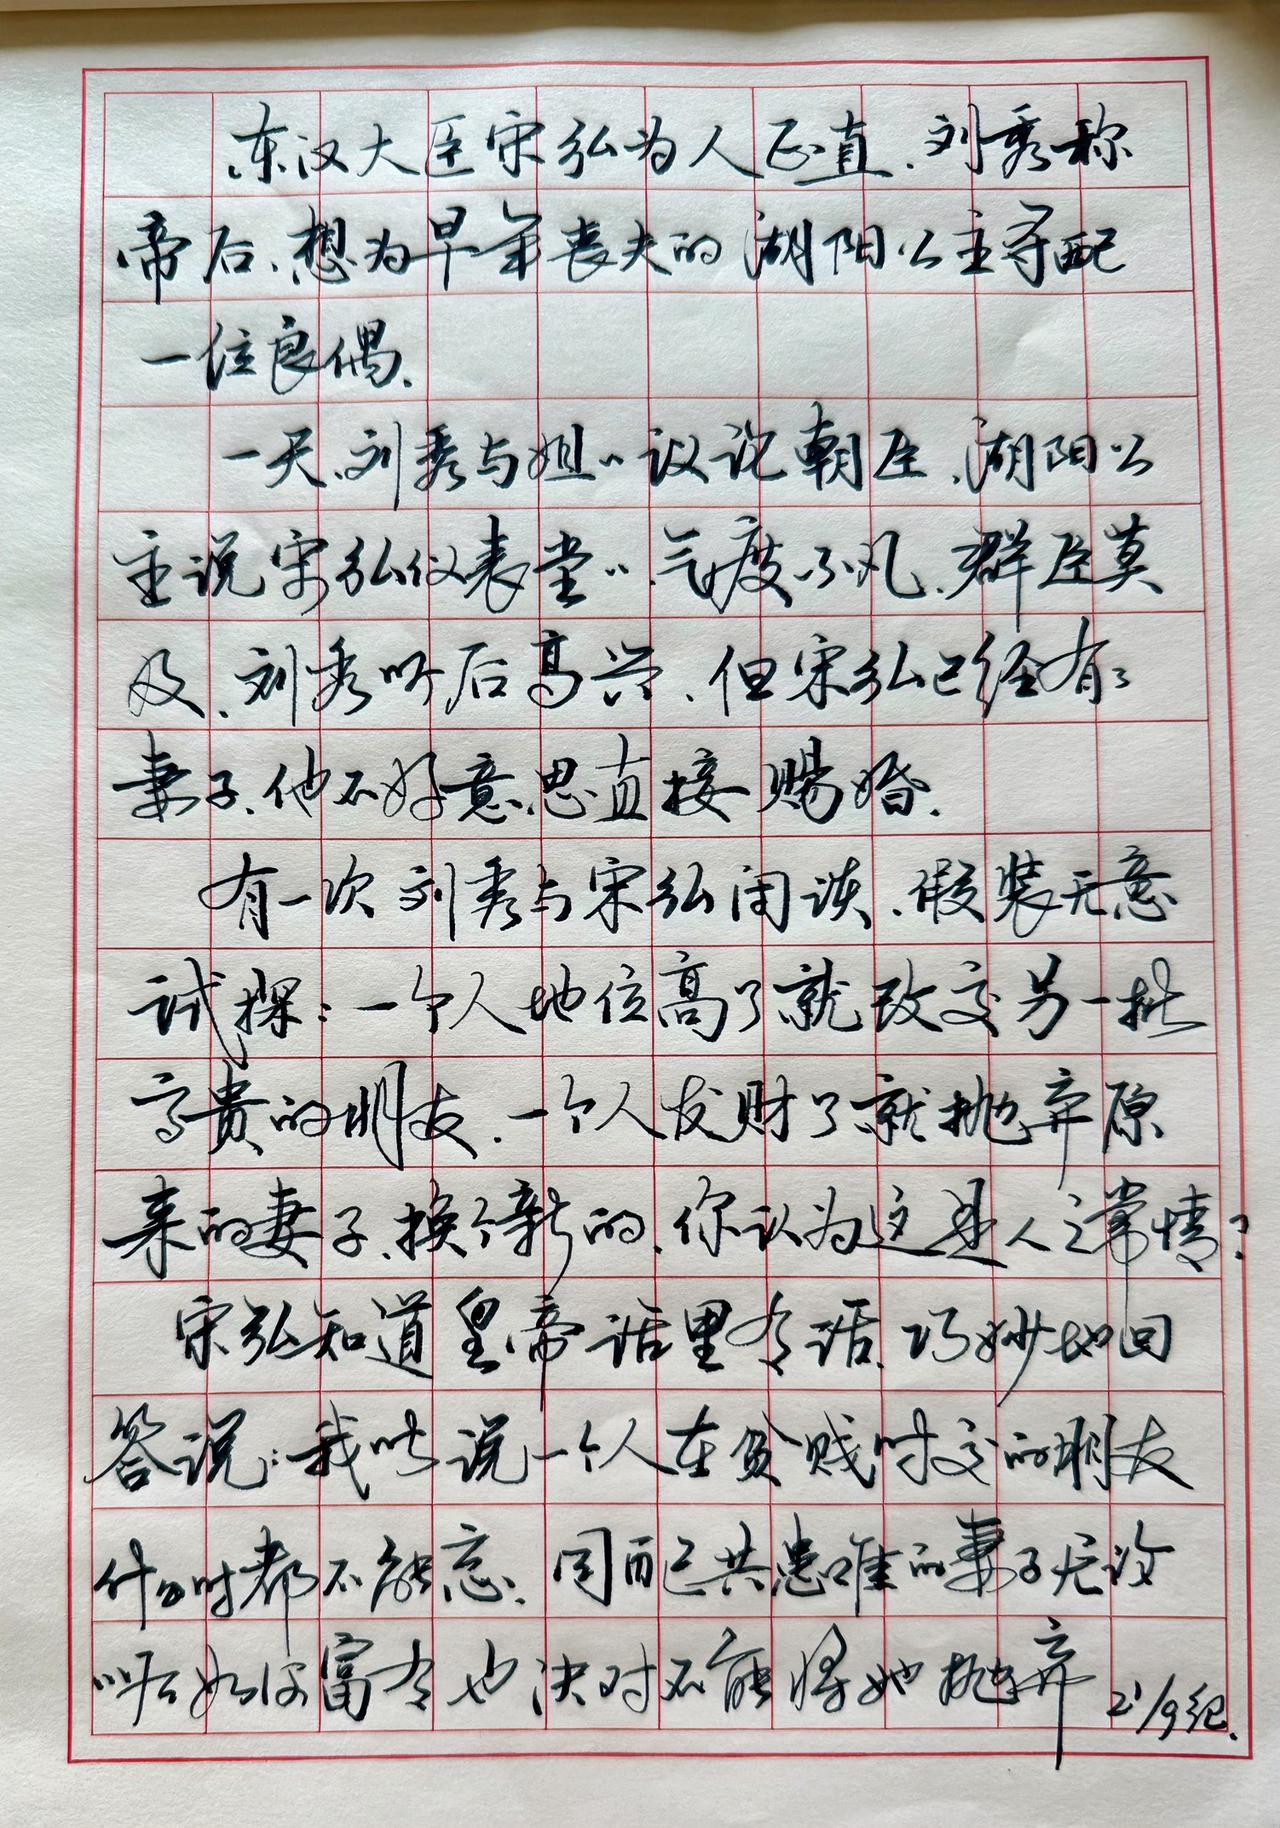 东汉大臣宋弘为人正直、刘秀称
帝后、想为早年丧夫的湖阳公主寻配
一位良偶.
一天、刘秀与姐〃议论朝臣、湖阳公
主说宋弘仪表堂〃、气度不凡、群臣莫
及、刘秀听后高兴、但宋弘已经有了
妻子、他不好意思直接赐婚.
有一次刘秀与宋弘闲谈、假装无意
试探：一个人地位高了就改交另一批
高贵的朋友、一个人发财了就抛弃原
来的妻子、换个新的、你认为这是人之常情?
宋弘知道皇帝话里有话、巧妙地回
答说：我听说一个人在贫贱时交的朋友
什么时都不能忘、同自己共患难的妻子无论
以后如何富有也决对不能将她抛弃
21/9纪.